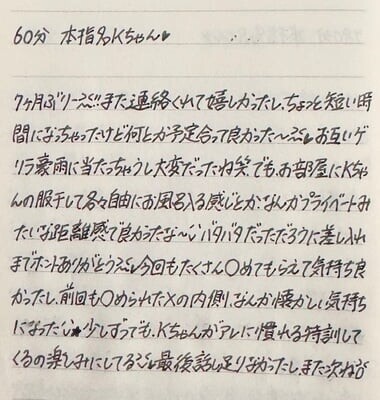 60分 本指名Kちゃん♥
7ヶ月ぶり〜!! また連絡くれて嬉しかったし、ちょっと短い時
間になっちゃったけど何とか予定合って良かった〜 お互いゲ
リラ豪雨に当たっちゃうし大変だったね笑、でも、お部屋にKちゃ
んの服干して各々自由にお風呂入る感じとかなんかプライベートみ
たいな距離感で良かったな〜 バタバタだっただろうに差し入れ
までホントありがとう 今回もたくさん〇めてもらえて気持ち良
かったし、前回も〇められた×の内側、なんか懐かしい気持ち
になった 少しずつでも、Kちゃんがアレに慣れる特訓して
くるの楽しみにしてる 最後話し足りなかったし、また次ね